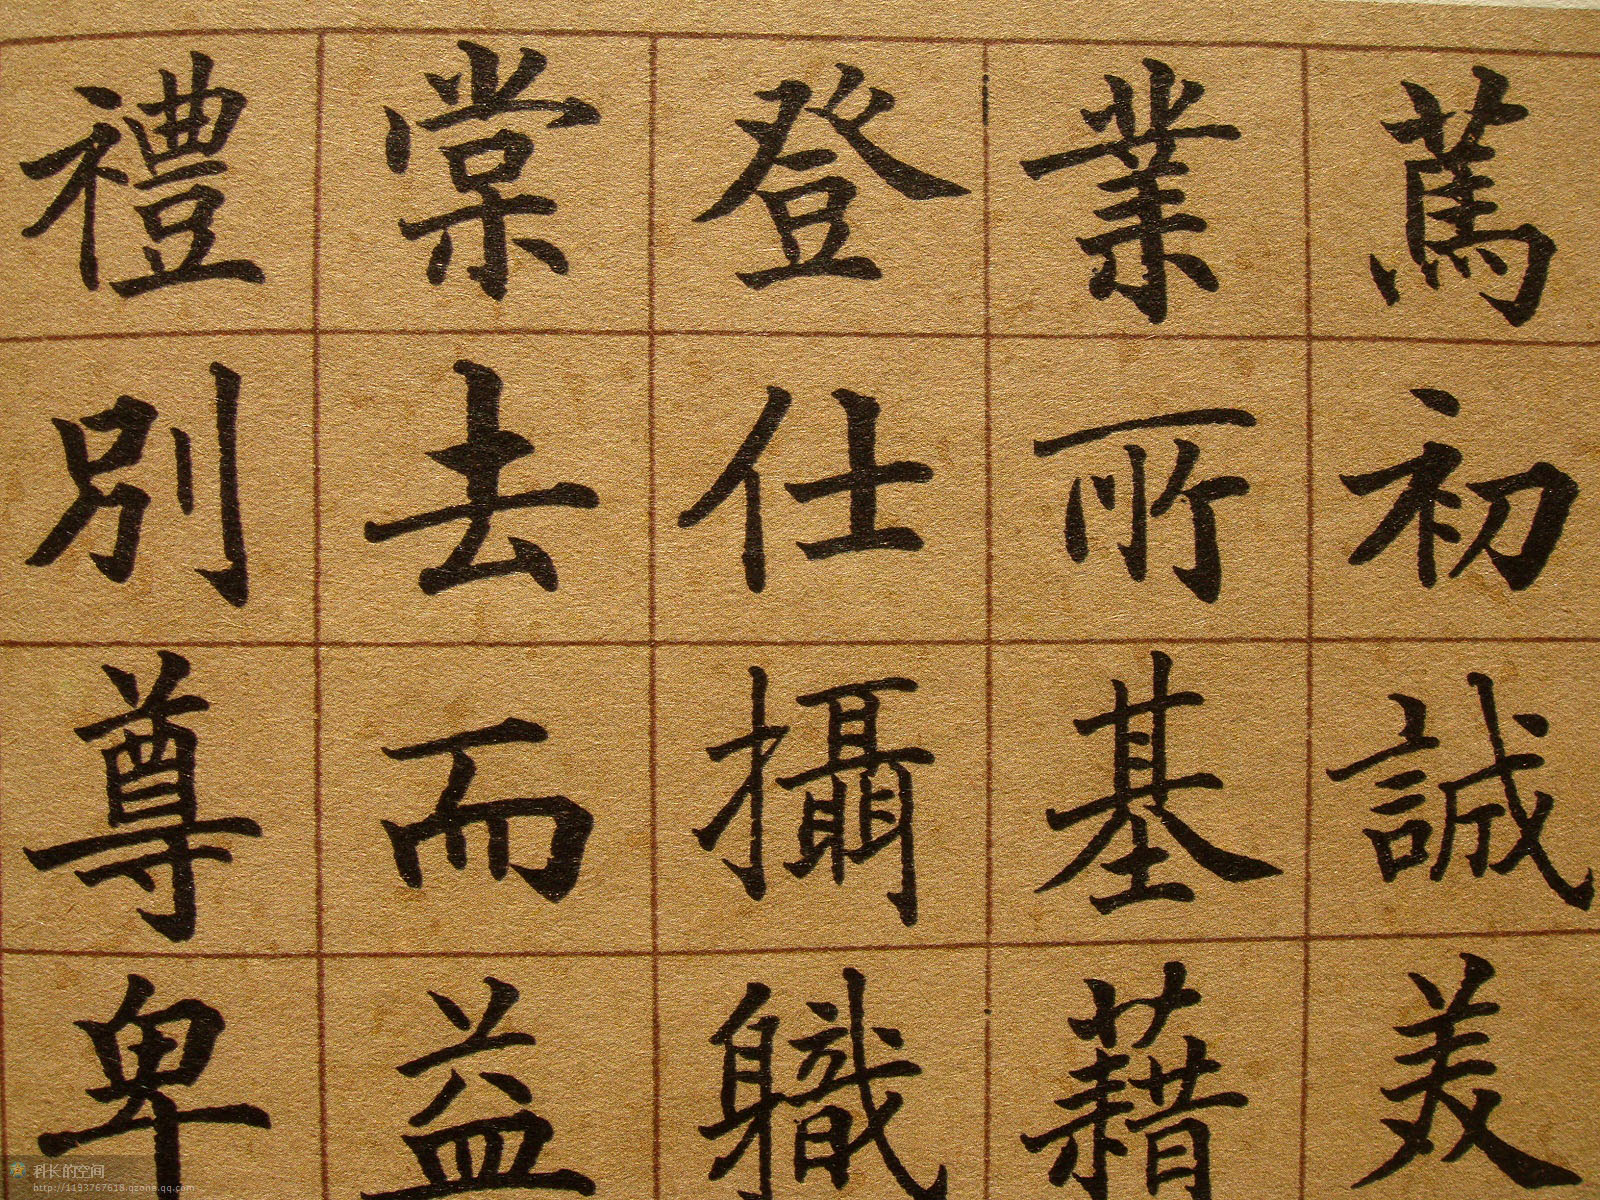 篤初誠美
業所基藉
登仕攝職
棠去而益
禮別尊卑
科长的空间
http://1193767618.qzone.qq.com